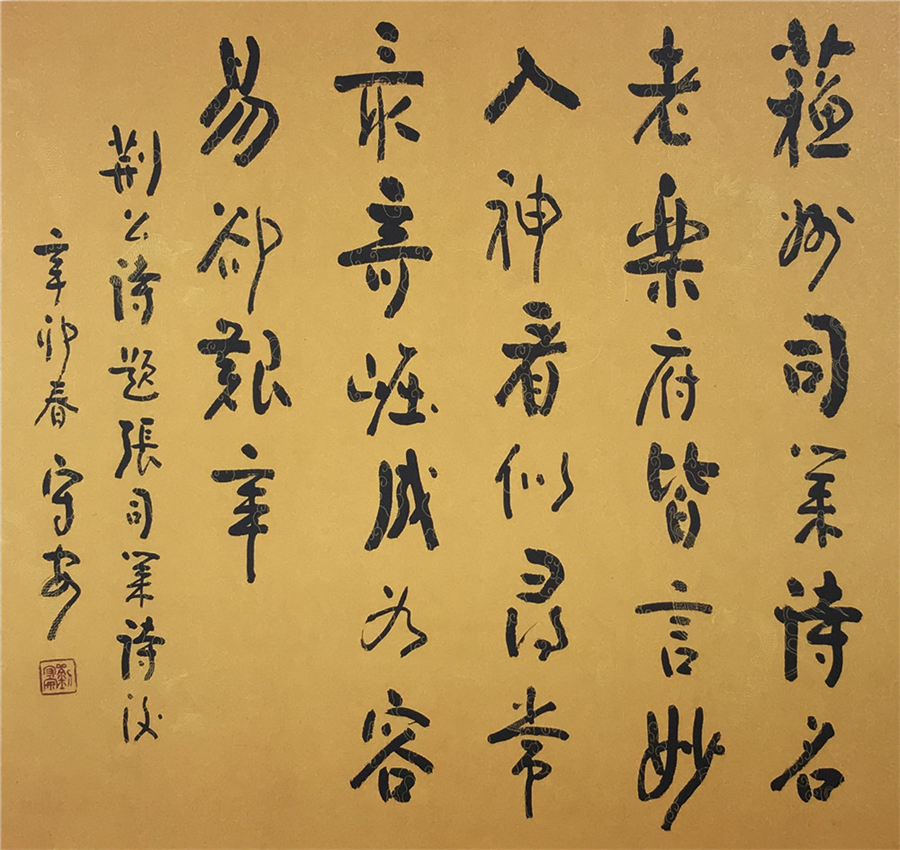 蘓州司業詩名
老樂府皆言妙
入神看似尋常
最奇崛成为容
易卻艱辛
荆公詩題張司業詩後
辛卯春 守安